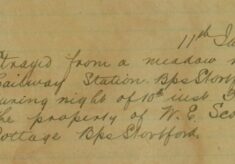 11th Ja
trayed from a meadow n
ailway Station Bps Stort
uring night of 10th inst
the property of W. E. Sco
ottage Bps Stortford.